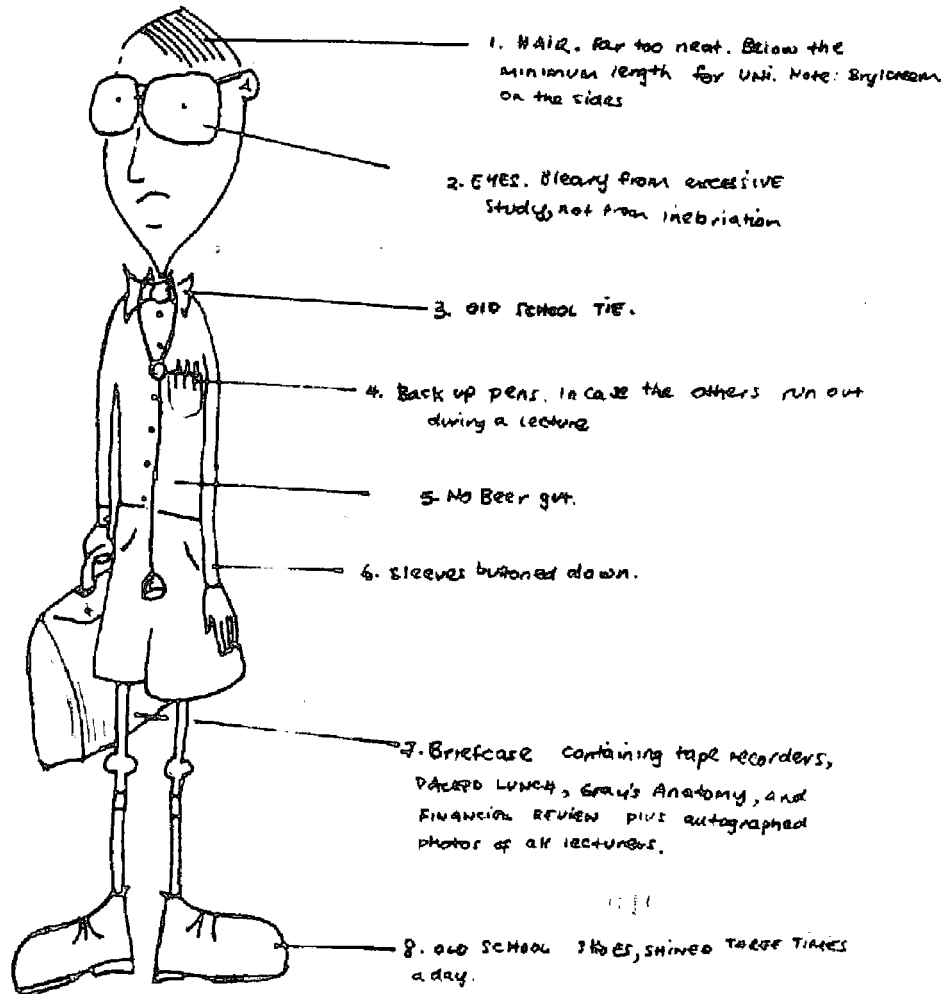 1. HAIR. Far too neat. Below the
minimum length for UNI. Note: Brylcreem
on the sides
2. EYES. Bleary from excessive
study, not from inebriation
3. OLD SCHOOL TIE.
4. Back up pens. In case the others run out
during a lecture
5. No Beer gut.
6. Sleeves buttoned down.
7. Briefcase containing tape recorders,
PACKED LUNCH, Gray's Anatomy, and
FINANCIAL REVIEW plus autographed
photos of all lecturers.
8. OLD SCHOOL SHOES, SHINED THREE TIMES
a day.